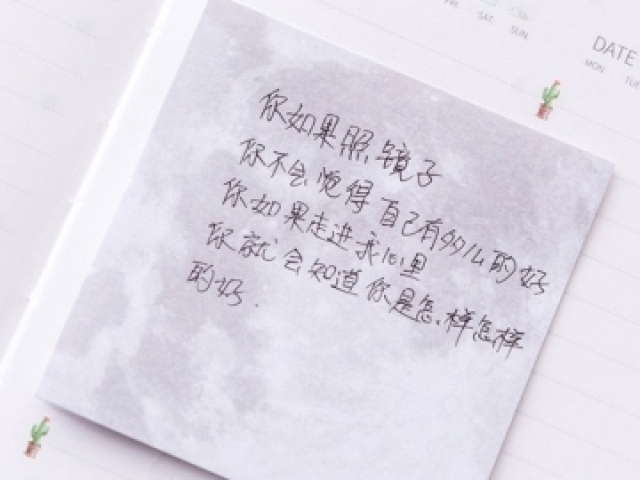 FRI.
SAT.
SUN.
DATE
MON.
TUE
你如果照镜子
你不会觉得自己有多么的好
你如果走进我心里
你就会知道你是怎样怎样
的好.